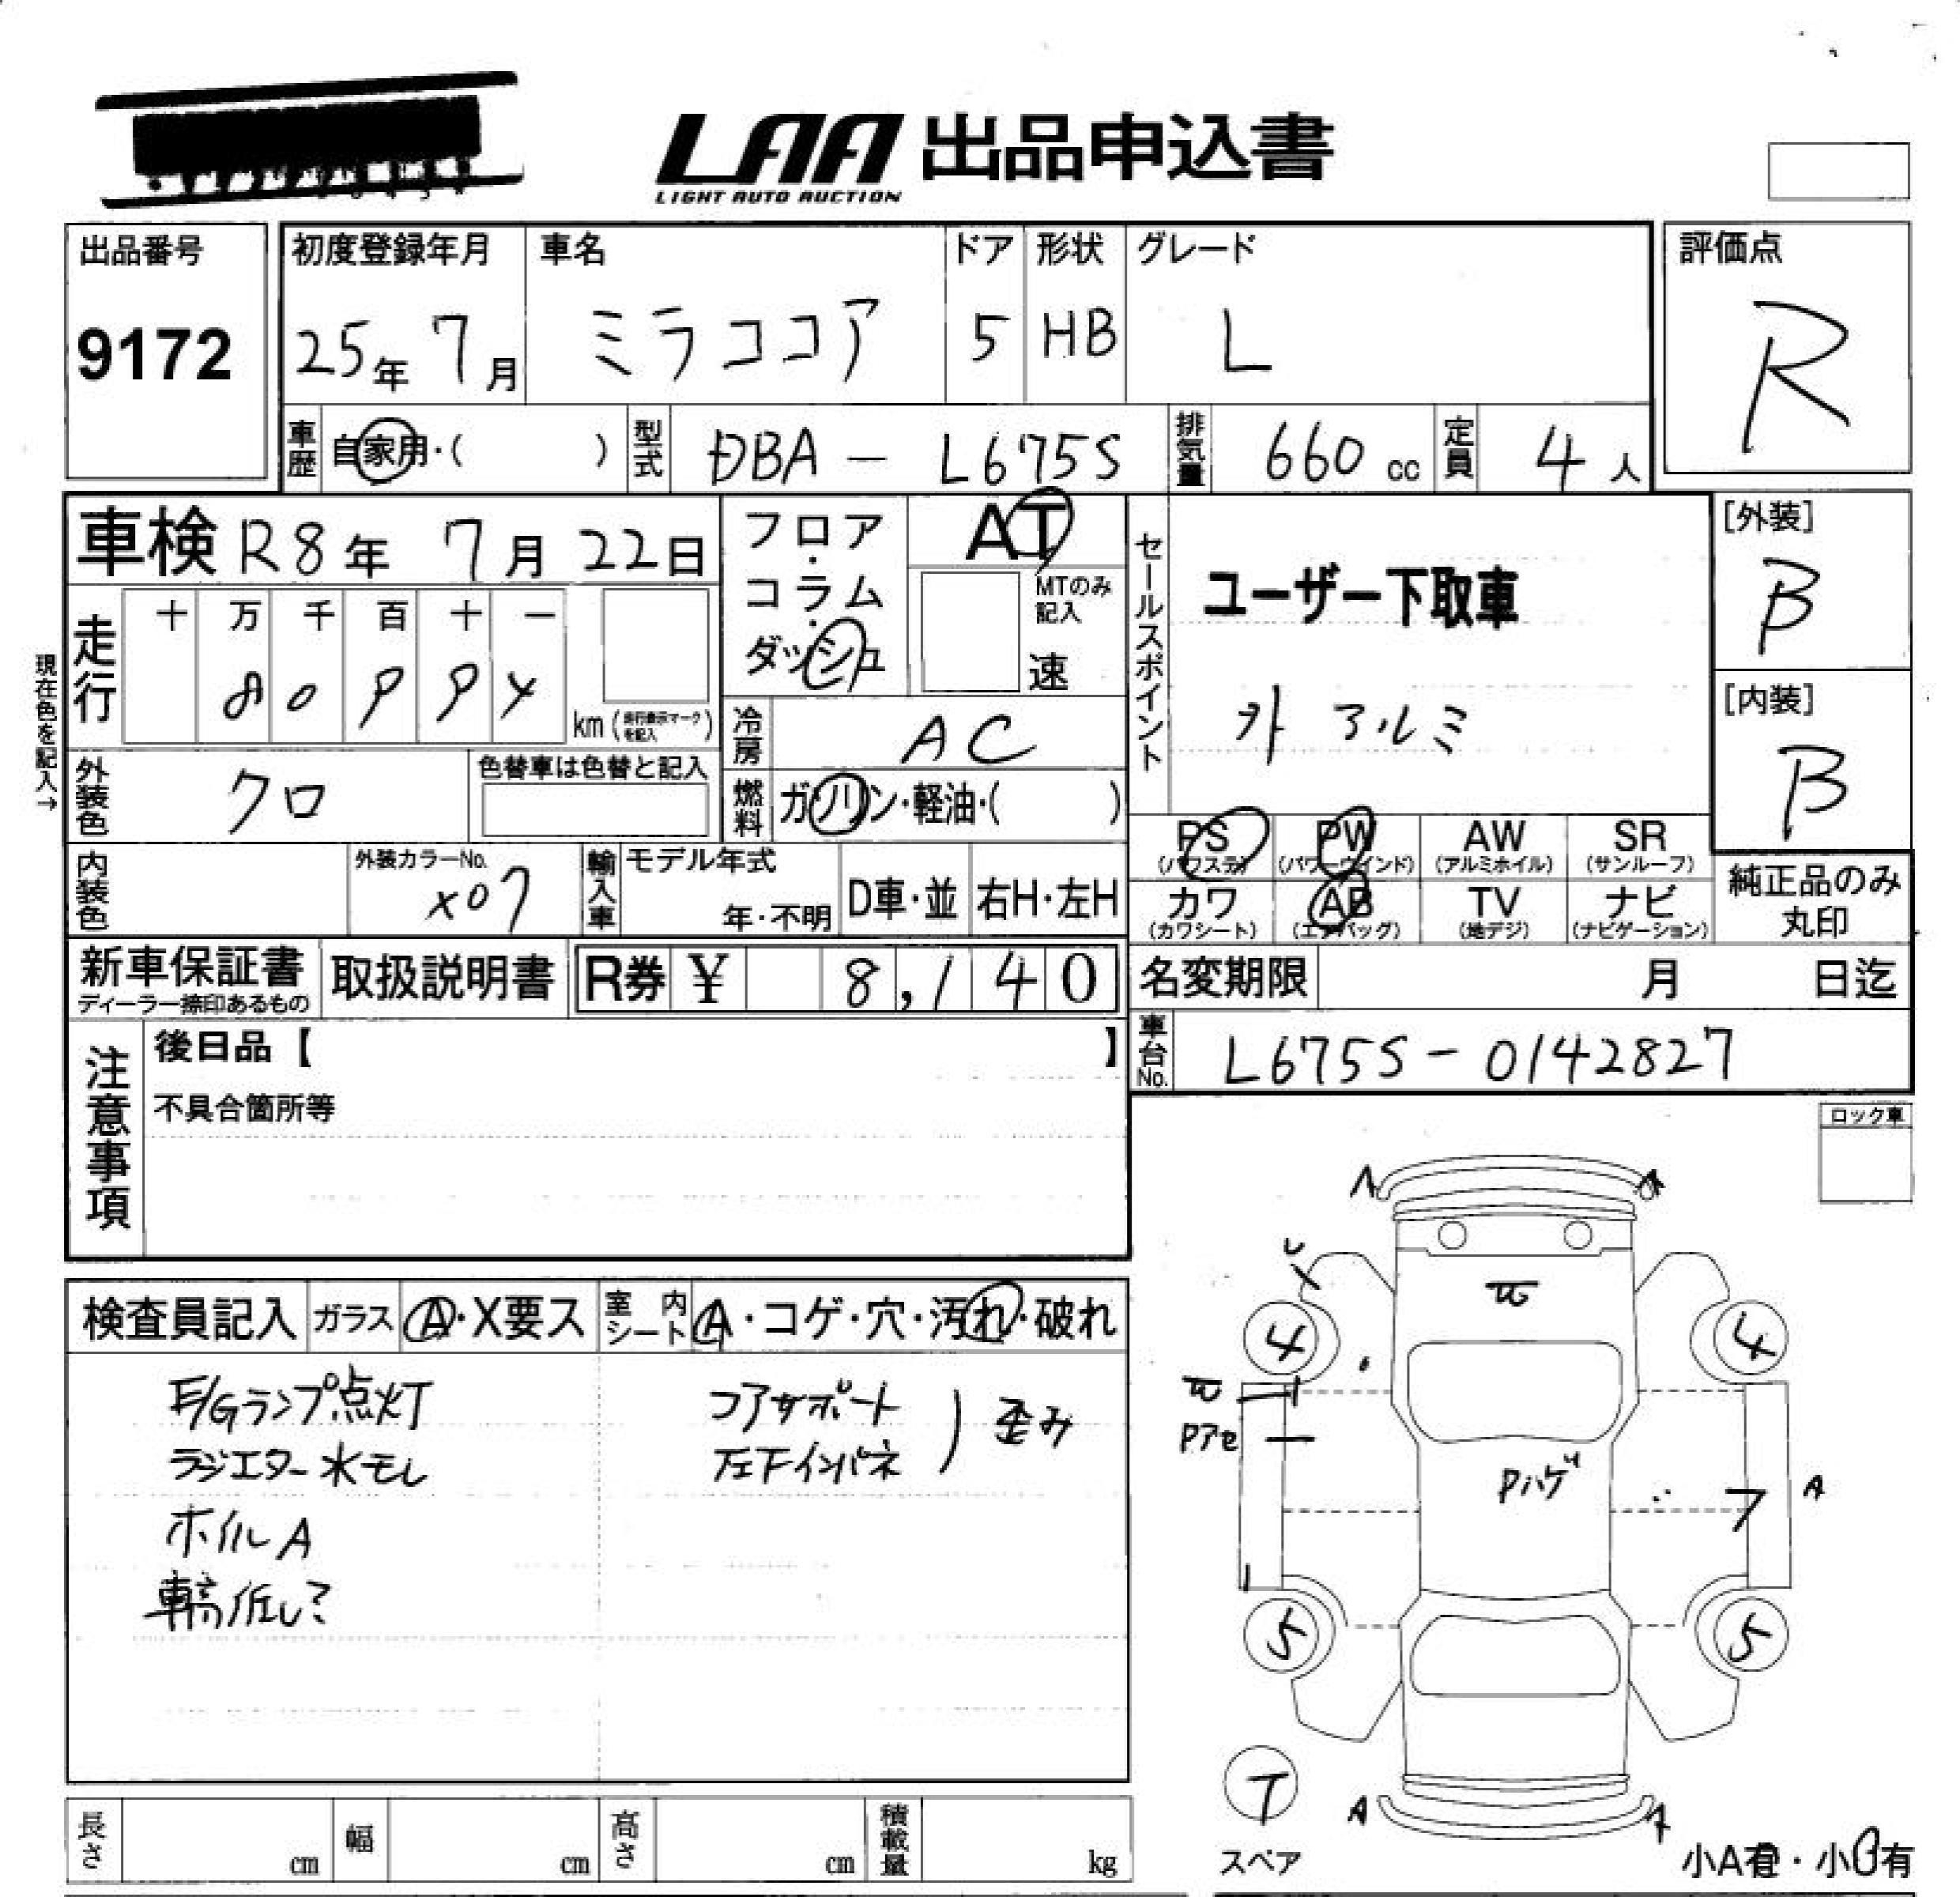 LAA 出品申込書
LIGHT AUTO AUCTION
出品番号
9172
初度登録年月
25年 7月
車名
ミラココア
ドア
5
形状
HB
グレード
L
評価点
R
車歴 自家用・( )
型式 DBA - L675S
排気量 660 cc
定員 4 人
車検 R8年 7月 22日
フロア・コラム・ダッシュ
AT
MTのみ記入
速
セールスポイント
ユーザー下取車
外 アルミ
[外装]
B
[内装]
B
現在色を記入→
走行
十 万 千 百 十 一
8 0 9 9 4
km (走行表示マークを記入)
冷房 AC
外装色 クロ
色替車は色替と記入
燃料 ガソリン・軽油・( )
PS (パワステ) PW (パワーウインド) AW (アルミホイル) SR (サンルーフ)
カワ (カワシート) AB (エアバッグ) TV (地デジ) ナビ (ナビゲーション)
純正品のみ丸印
内装色
外装カラーNo.
X07
輸入車
モデル年式
年・不明
D車・並
右H・左H
新車保証書
ディーラー捺印あるもの
取扱説明書
R券 ¥ 8,140
名変期限 月 日迄
車台No. L675S - 0142827
注意事項
後日品【 】
不具合箇所等
ロック車
検査員記入
ガラス A・X要ス
室内シート A・コゲ・穴・汚れ・破れ
E/Gランプ点灯
ラジエター水モレ
ホイルA
車高低し?
コアサポート
左下インパネ
歪み
A
A
4
4
Pハゲ
A
5
5
T
スペア
A
A
小A有・小U有
長さ cm
幅 cm
高さ cm
積載量 kg